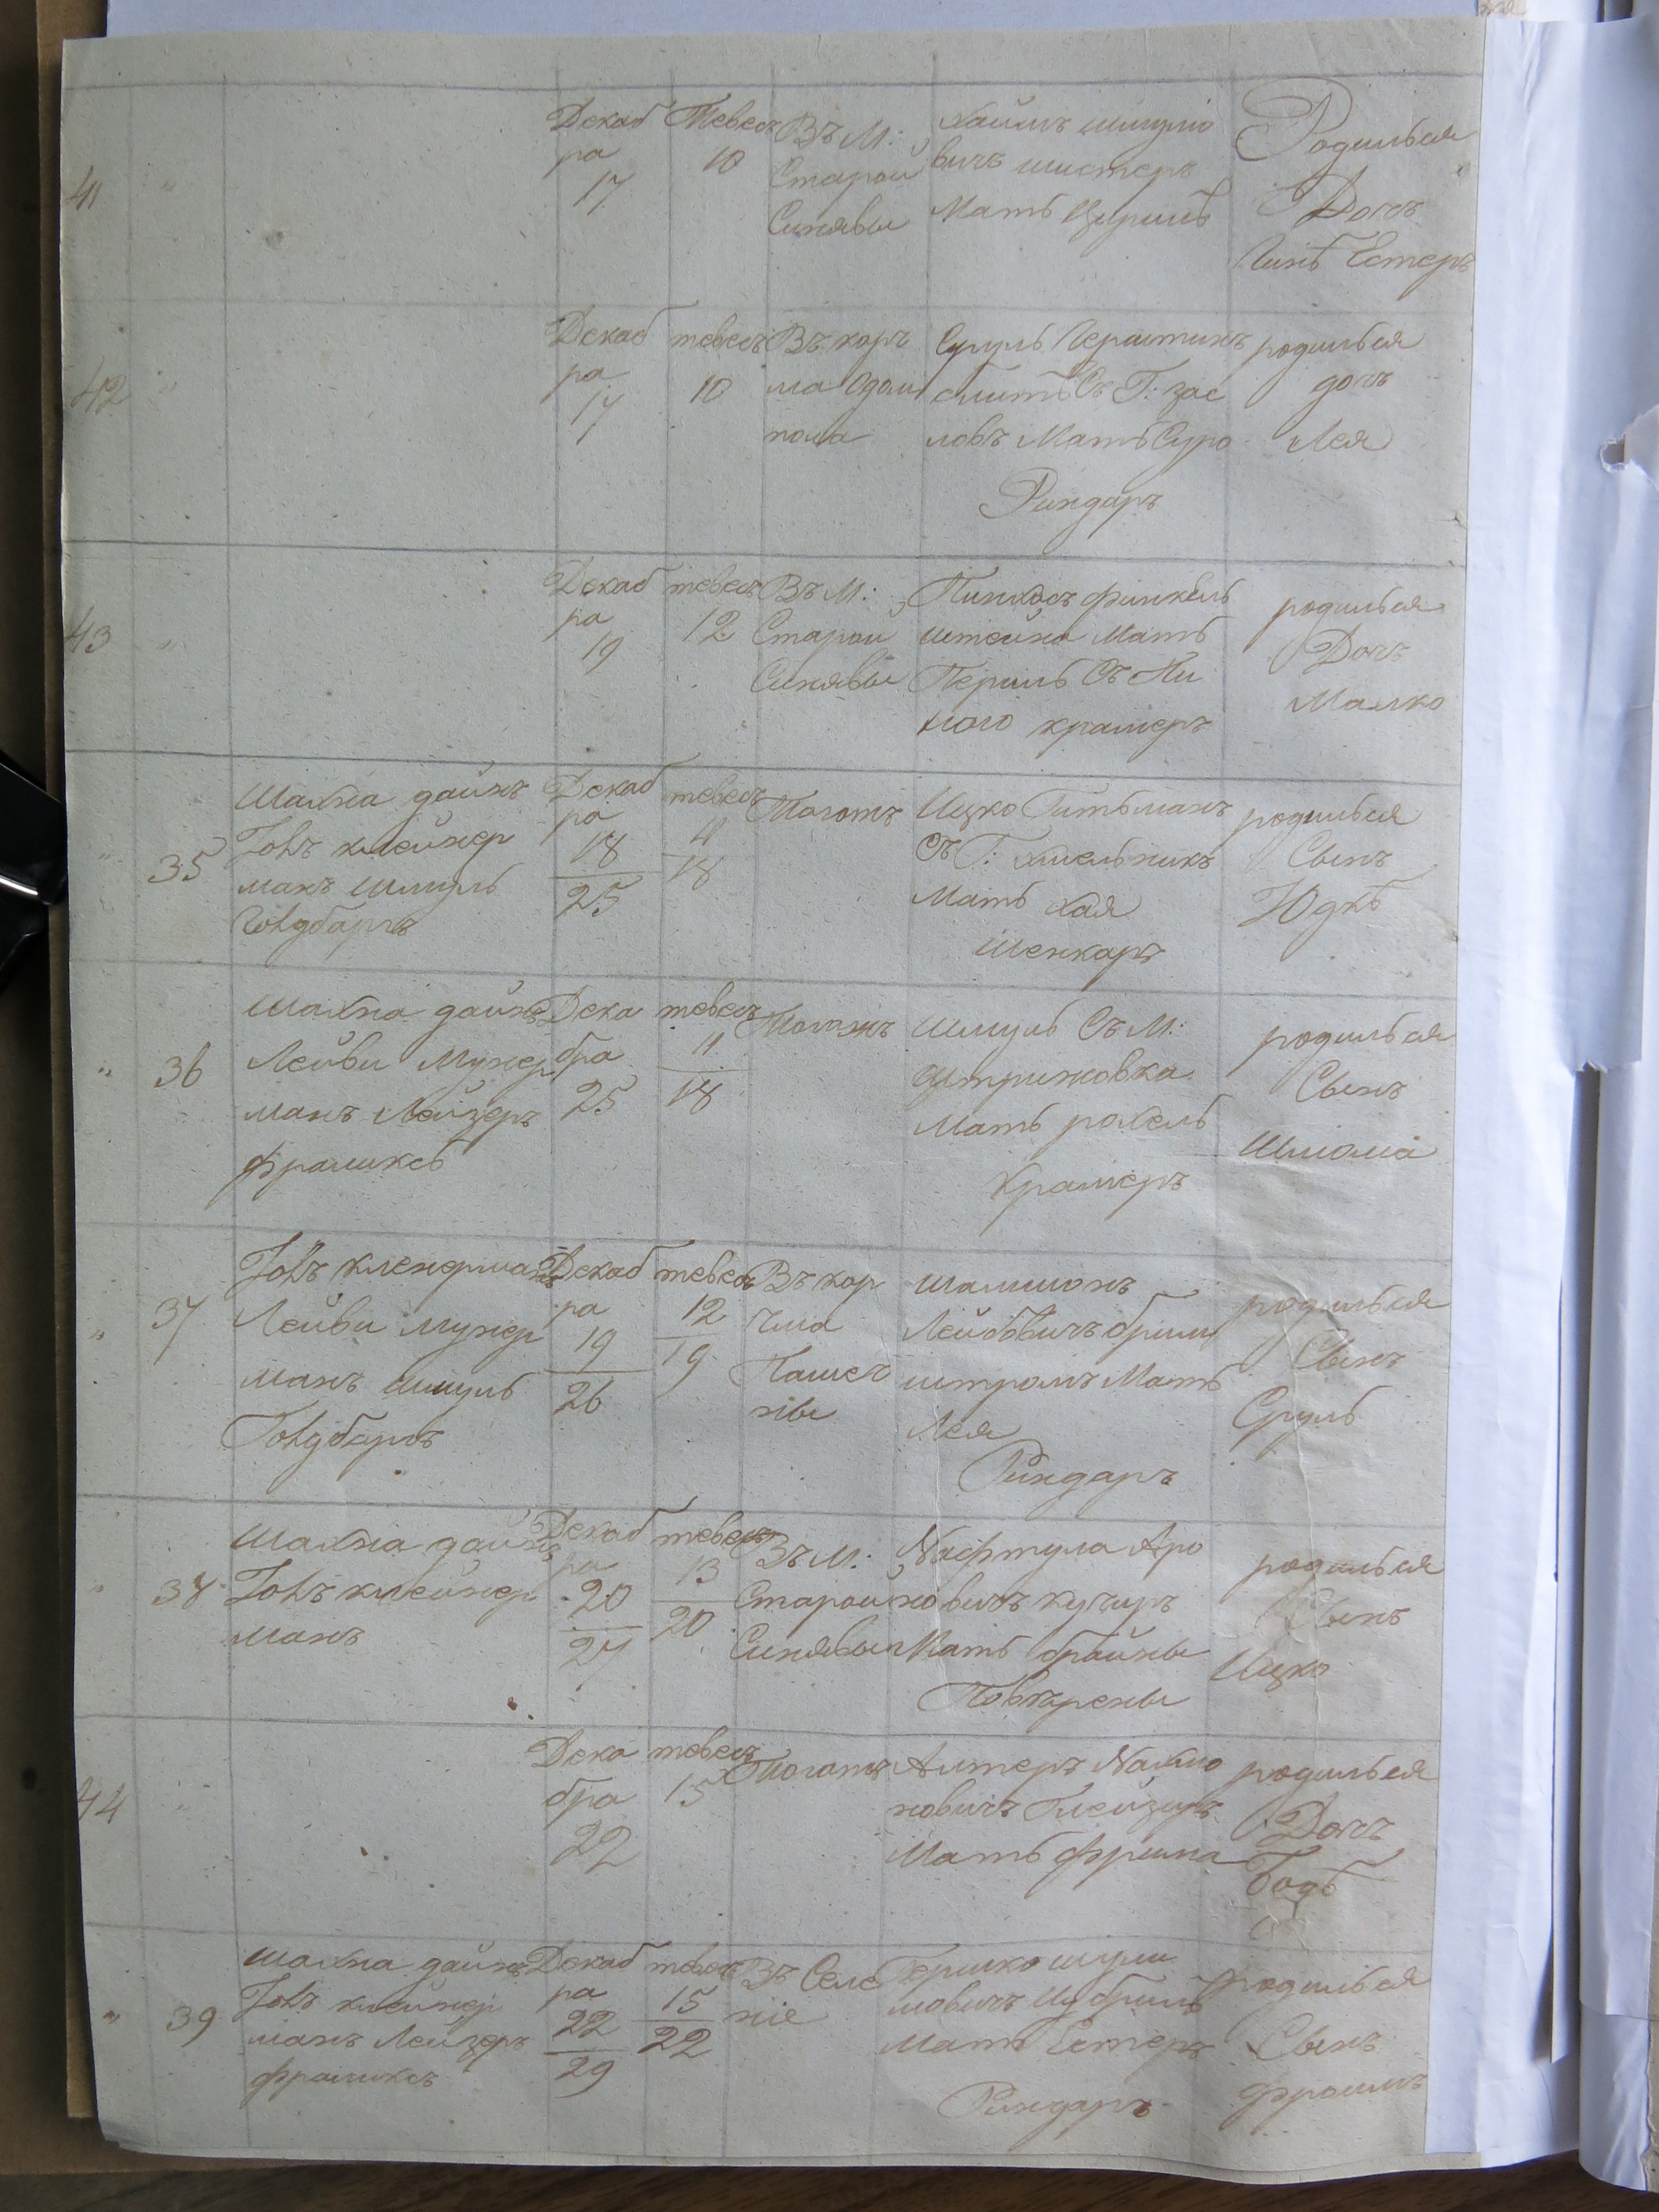 41 " Декаб ра 17 Тевесъ 10 Въ М: Старой Синявы Хаимъ Шмулио
вичъ шистеръ
Мать Цирилъ
Родилься
Дочь
Естеръ
42 " Декаб ра 17 тевесъ 10 Въ корч
ма Одаи
пола
Сруль
Съ Г: зас
ловъ Мать Суро
Риндаръ
родилься
дочь
Лея
43 " Декаб ра 19 тевесъ 12 Въ М:
Старой
Синявы
Пинхосъ финкель
штейна Мать
Перилъ Съ Пи
ного крамеръ
родилься
Дочь
Малко
" 35 Шахна даинъ
Іовъ клейнер
манъ Шмуль
Говдбаргъ
Декаб
ра
18
25
тевесъ
11
18
Тогожъ
Ицко Гитьманъ
съ Г: Хмельникъ
Мать Хая
Шенкаръ
родилься
Сынъ
Юдкѣ
" 36 Шахна даинъ
Лейви Мунер
манъ Лейзеръ
фраимкеъ
Дека
бра
25
тевесъ
11
18
Тогожъ
Шмуль Съ М:
Мать рохель
Крамеръ
родилься
Сынъ
Шлома
" 37 Іовъ кленерманъ
Лейви Мунер
манъ Шмуль
Говдбаргъ
Декаб
ра
19
26
тевесъ
12
19
Въ кор
чма
Пашеч
нiвы
Шамшонъ
Лейбовичъ брим
штромъ Мать
Лея
Риндаръ
родилься
Сынъ
Сруль
" 38 Шахна даинъ
Іовъ клейнер
манъ
Декаб
ра
20
27
тевесъ
13
20
Въ М:
Старой
Синявы
Нафтула Аро
новичъ кучиръ
Мать брайны
Повѣрены
родилься
Сынъ
Ицко
44 " Дека
бра
22
тевесъ
15
Тогожъ
Алтеръ Нахмо
новичъ Глейзеръ
Мать фрима
родилься
Дочь
" 39 Шахна даинъ
Іовъ клейнер
манъ Лейзеръ
фраимкеъ
Декаб
ра
22
29
тевесъ
15
22
Въ Селе
ніе
Гершко шули
мовичъ
Мать Естеръ
Риндаръ
родилься
Сынъ
Фроимъ